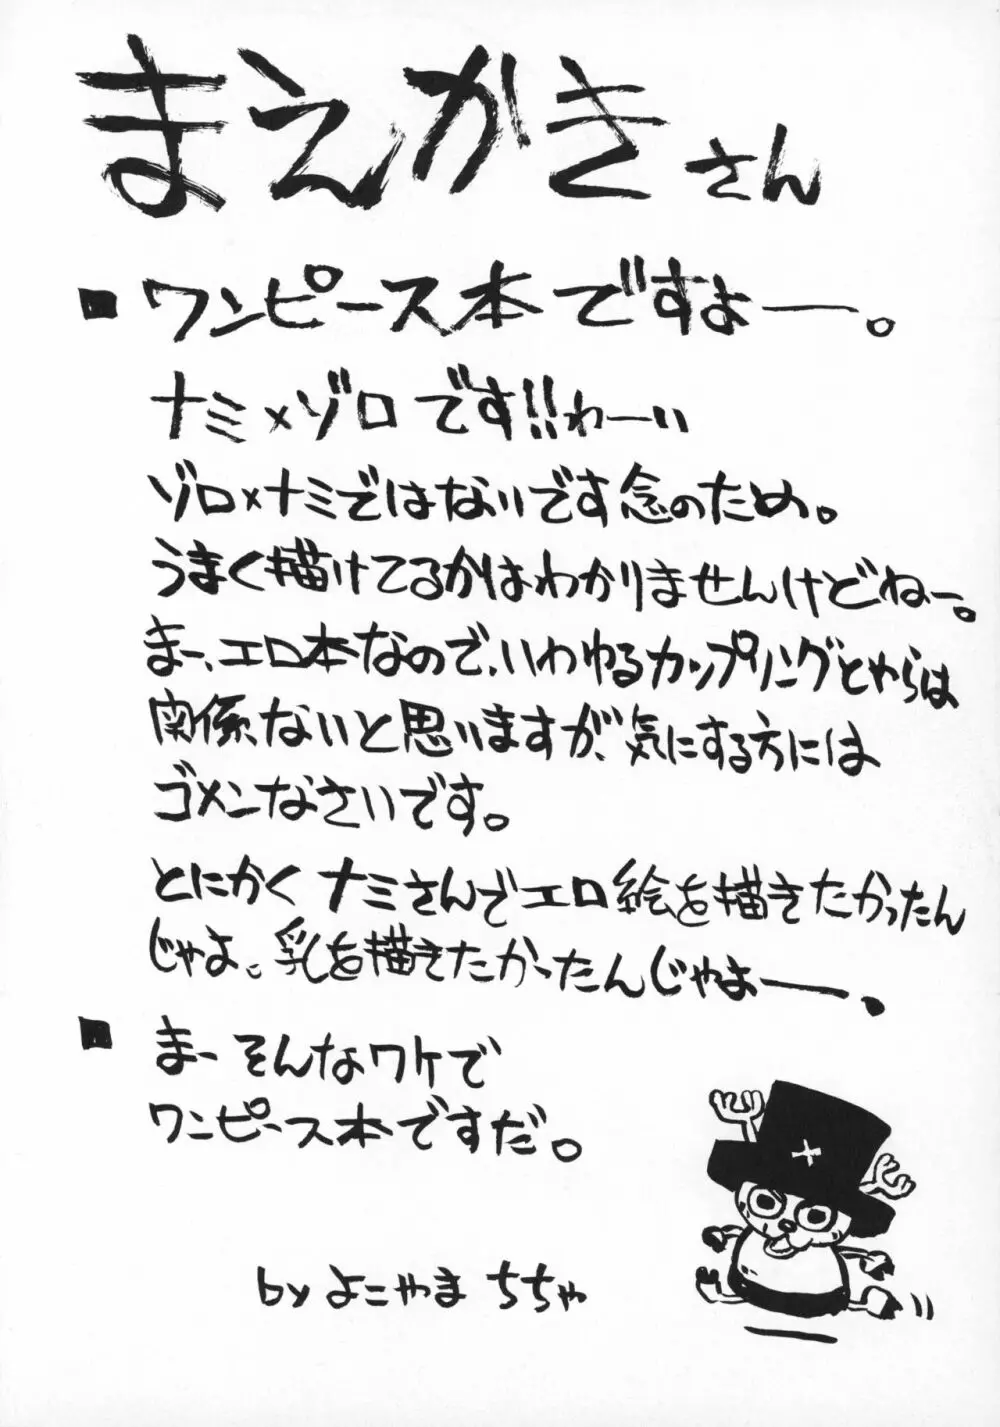 まえがきさん
■ ワンピース本ですよー。
ナミ×ゾロです!!わーい
ゾロ×ナミではないです念のため。
うまく描けてるかはわかりませんけどねー。
まー、エロ本なので、いわゆるカップリングとやらは
関係ないと思いますが、気にする方には
ゴメンなさいです。
とにかくナミさんでエロ絵を描きたかったん
じゃよ。乳を描きたかったんじゃよー。
■ まーそんなワケで
ワンピース本ですだ。
by よこやま ちちゃ